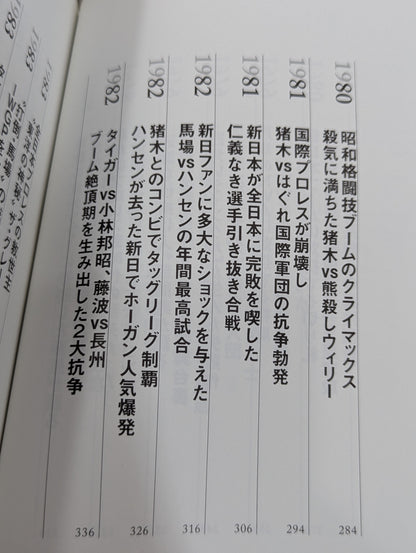 1980
昭和格闘技ブームのクライマックス
殺気に満ちた猪木vs熊殺しウィリー
284
1981
国際プロレスが崩壊し
猪木vsはぐれ国際軍団の抗争勃発
294
1981
新日本が全日本に完敗を喫した
仁義なき選手引き抜き合戦
306
1982
新日ファンに多大なショックを与えた
馬場vsハンセンの年間最高試合
316
1982
猪木とのコンビでタッグリーグ制覇
ハンセンが去った新日でホーガン人気爆発
326
1982
タイガーvs小林邦昭、藤波vs長州
ブーム絶頂期を生み出した2大抗争
336
1983
1983